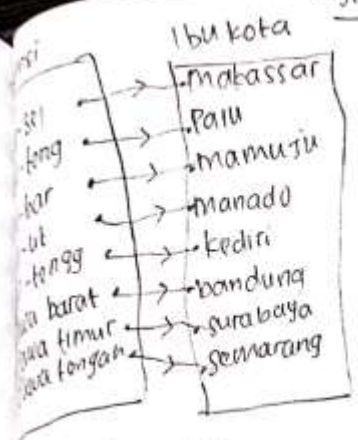 nsi Ibu kota
-sel makassar
-teng Palu
-bar mamuju
-ut manado
-tengg kediri
wa barat bandung
awa timur surabaya
Jawa tengah semarang